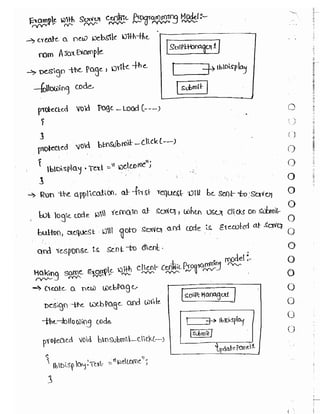 Example with Server Centric Programming Model:-
→ create a new website with the
nam Ajax Example
ScriptManager1
→ Design the Page, write the
following code.
lblDisplay
Submit
protected void Page_Load (---)
{
}
protected void btnsubmit_click(---)
{
lblDisplay.Text = "welcome";
}
→ Run the application, at first request will be sent to server
but logic code will remain at server, when user clicks on submit
button, request will goto server and code is Executed at server
and response is sent to client.
Making same Example with Client Centric Programming model:-
→ Create a new webpage
Design the webpage and write
the following code
ScriptManager1
lblDisplay
Submit
UpdatePanel1
protected void btnsubmit_click(---)
{
lblDisplay.Text = "welcome";
}